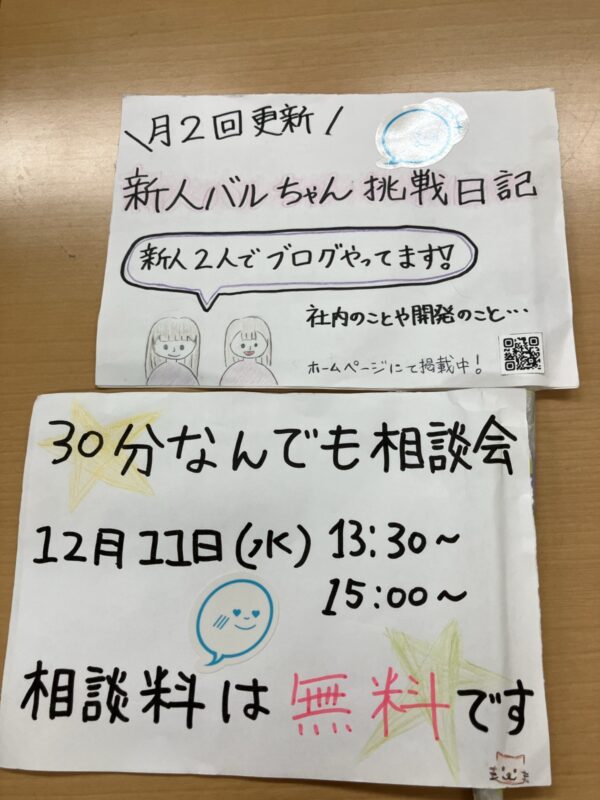 \月2回更新/
新人バルちゃん挑戦日記
新人2人でブログやってます!
社内のことや開発のこと…
ホームページにて掲載中!
30分なんでも相談会
12月11日(水) 13:30~
15:00~
相談料は無料です